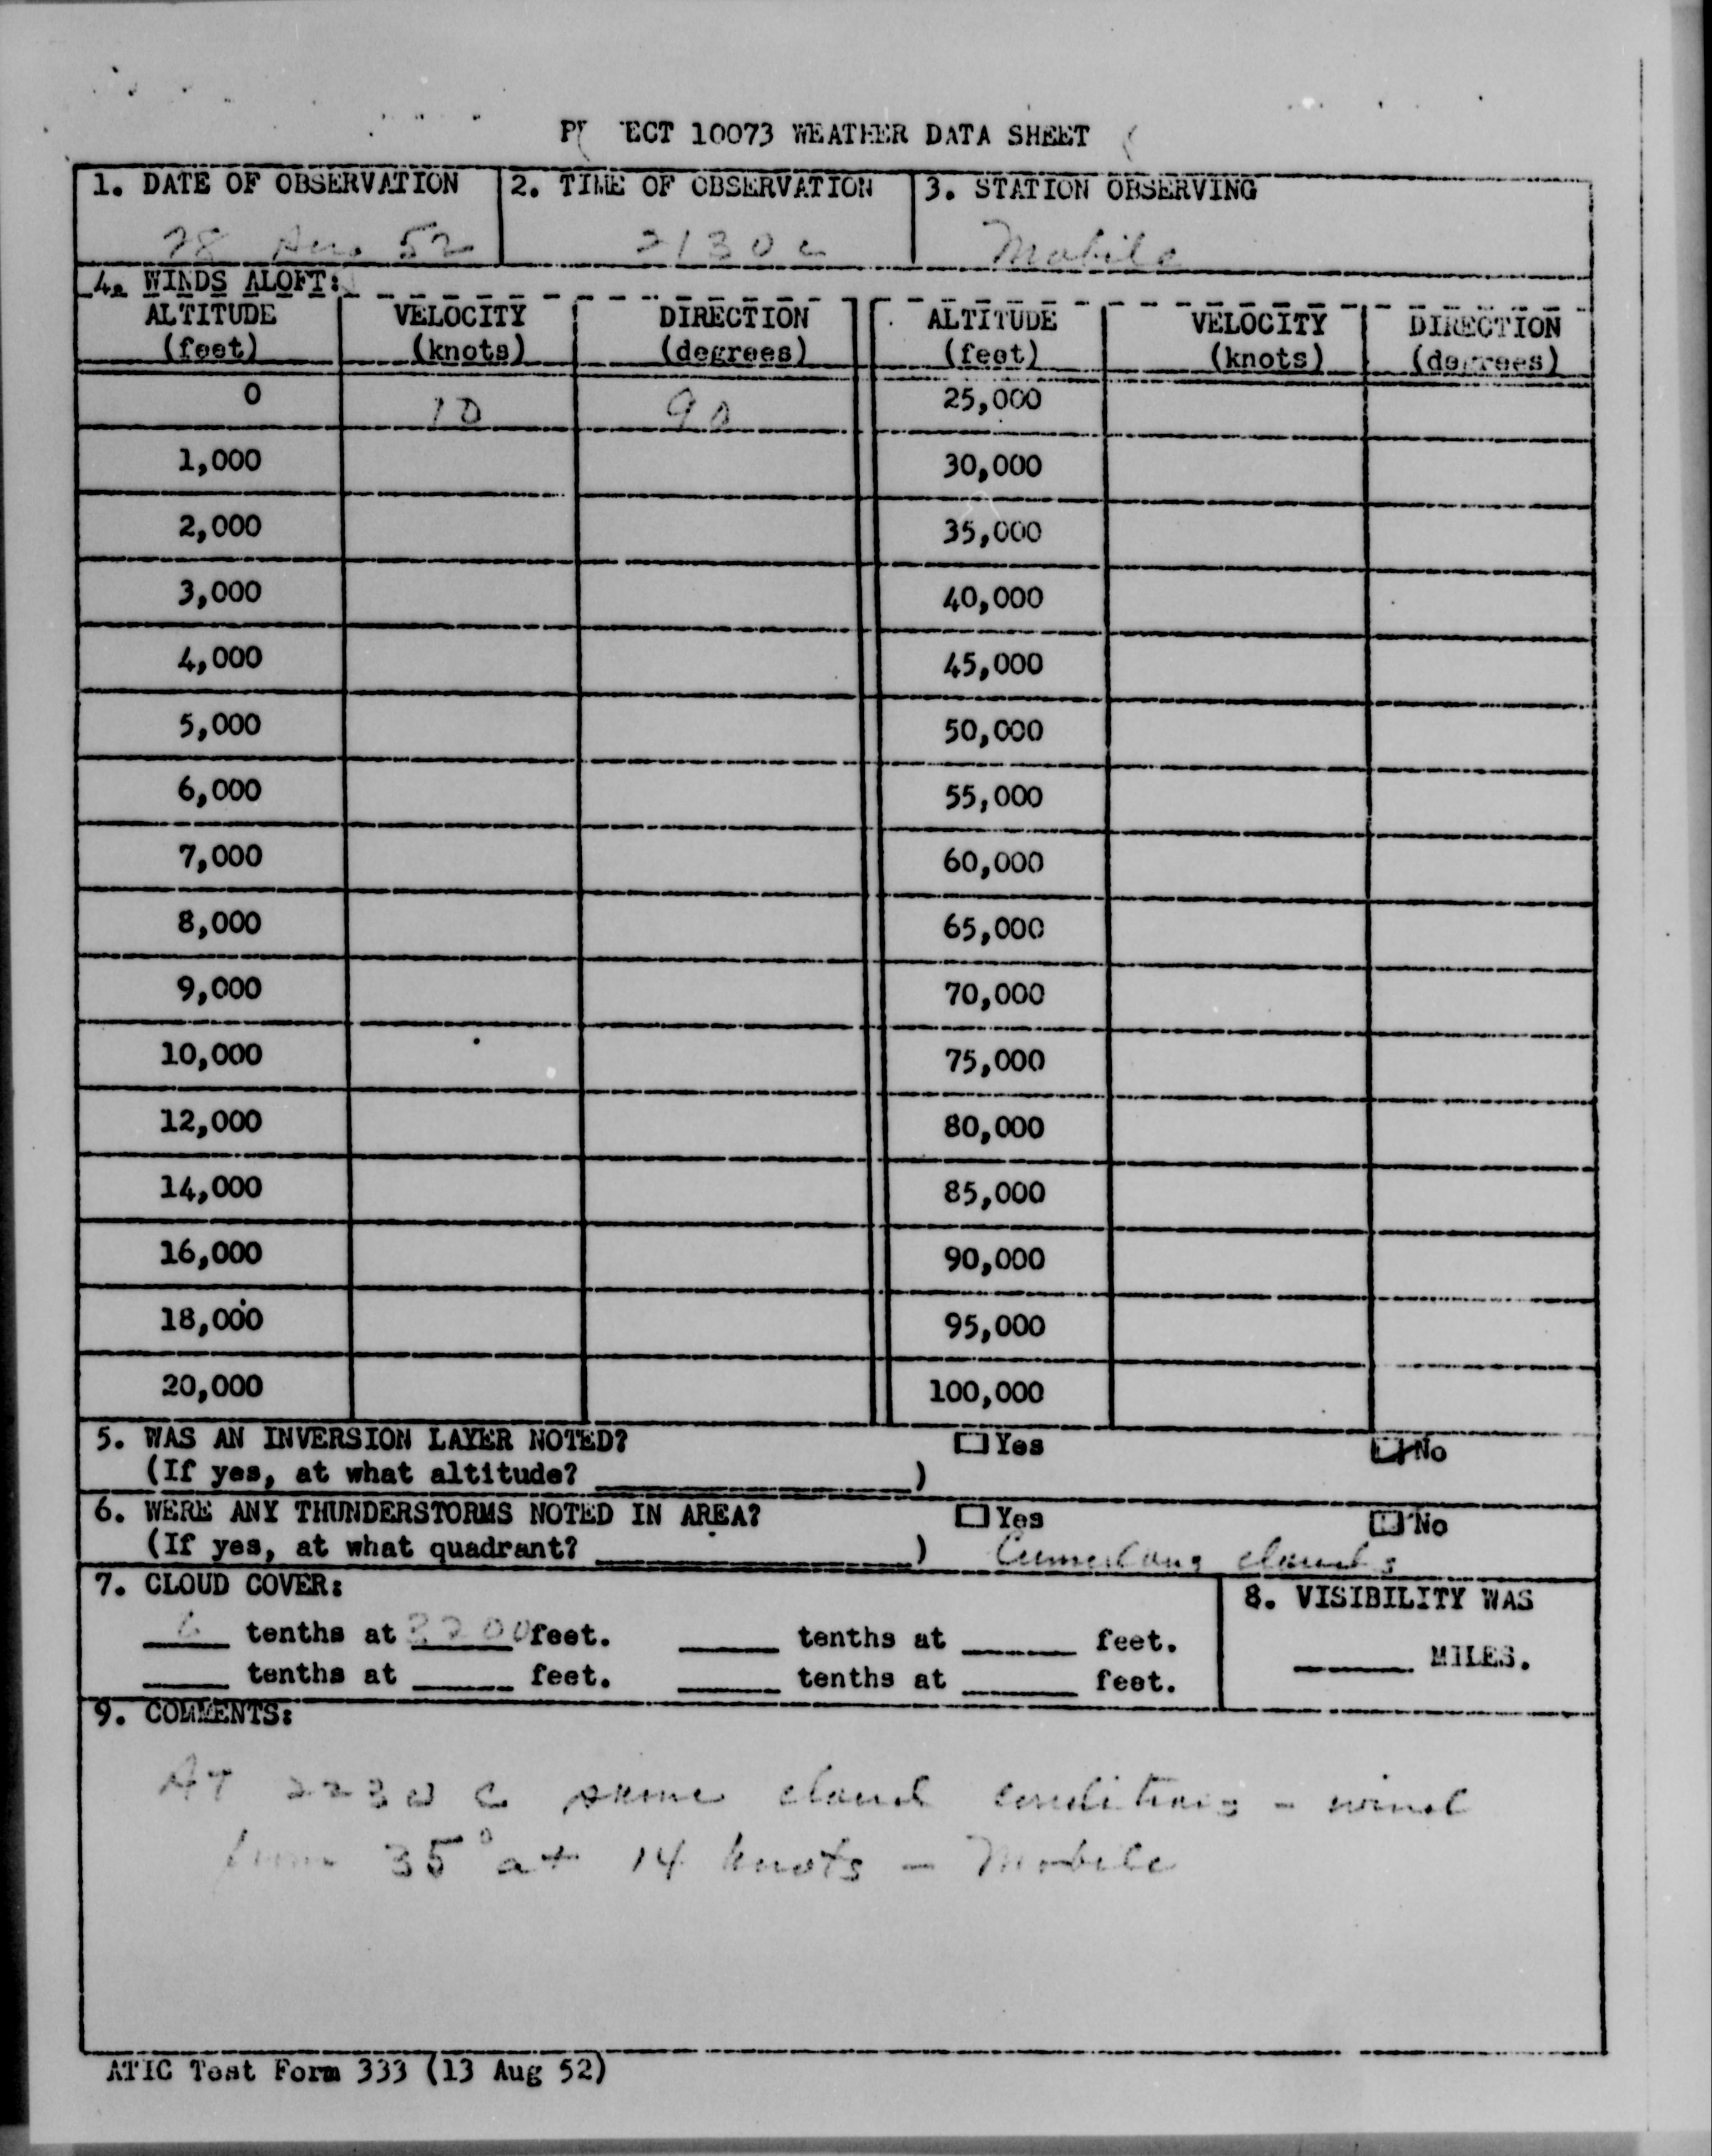 PROJECT 10073 WEATHER DATA SHEET
1. DATE OF OBSERVATION 2. TIME OF OBSERVATION 3. STATION OBSERVING
28 Aug 52 2130 c Mobile
4. WINDS ALOFT:
ALTITUDE VELOCITY DIRECTION ALTITUDE VELOCITY DIRECTION
(feet) (knots) (degrees) (feet) (knots) (degrees)
0 10 90 25,000
1,000 30,000
2,000 35,000
3,000 40,000
4,000 45,000
5,000 50,000
6,000 55,000
7,000 60,000
8,000 65,000
9,000 70,000
10,000 75,000
12,000 80,000
14,000 85,000
16,000 90,000
18,000 95,000
20,000 100,000
5. WAS AN INVERSION LAYER NOTED? Yes No
(If yes, at what altitude? )
6. WERE ANY THUNDERSTORMS NOTED IN AREA? Yes No
(If yes, at what quadrant? ) clouds
7. CLOUD COVER: 8. VISIBILITY WAS
6 tenths at feet. tenths at feet.
MILES.
tenths at feet. tenths at feet.
9. COMMENTS:
AT 2230 C same cloud conditions - wind
from 35° at 14 knots - Mobile
ATIC Test Form 333 (13 Aug 52)